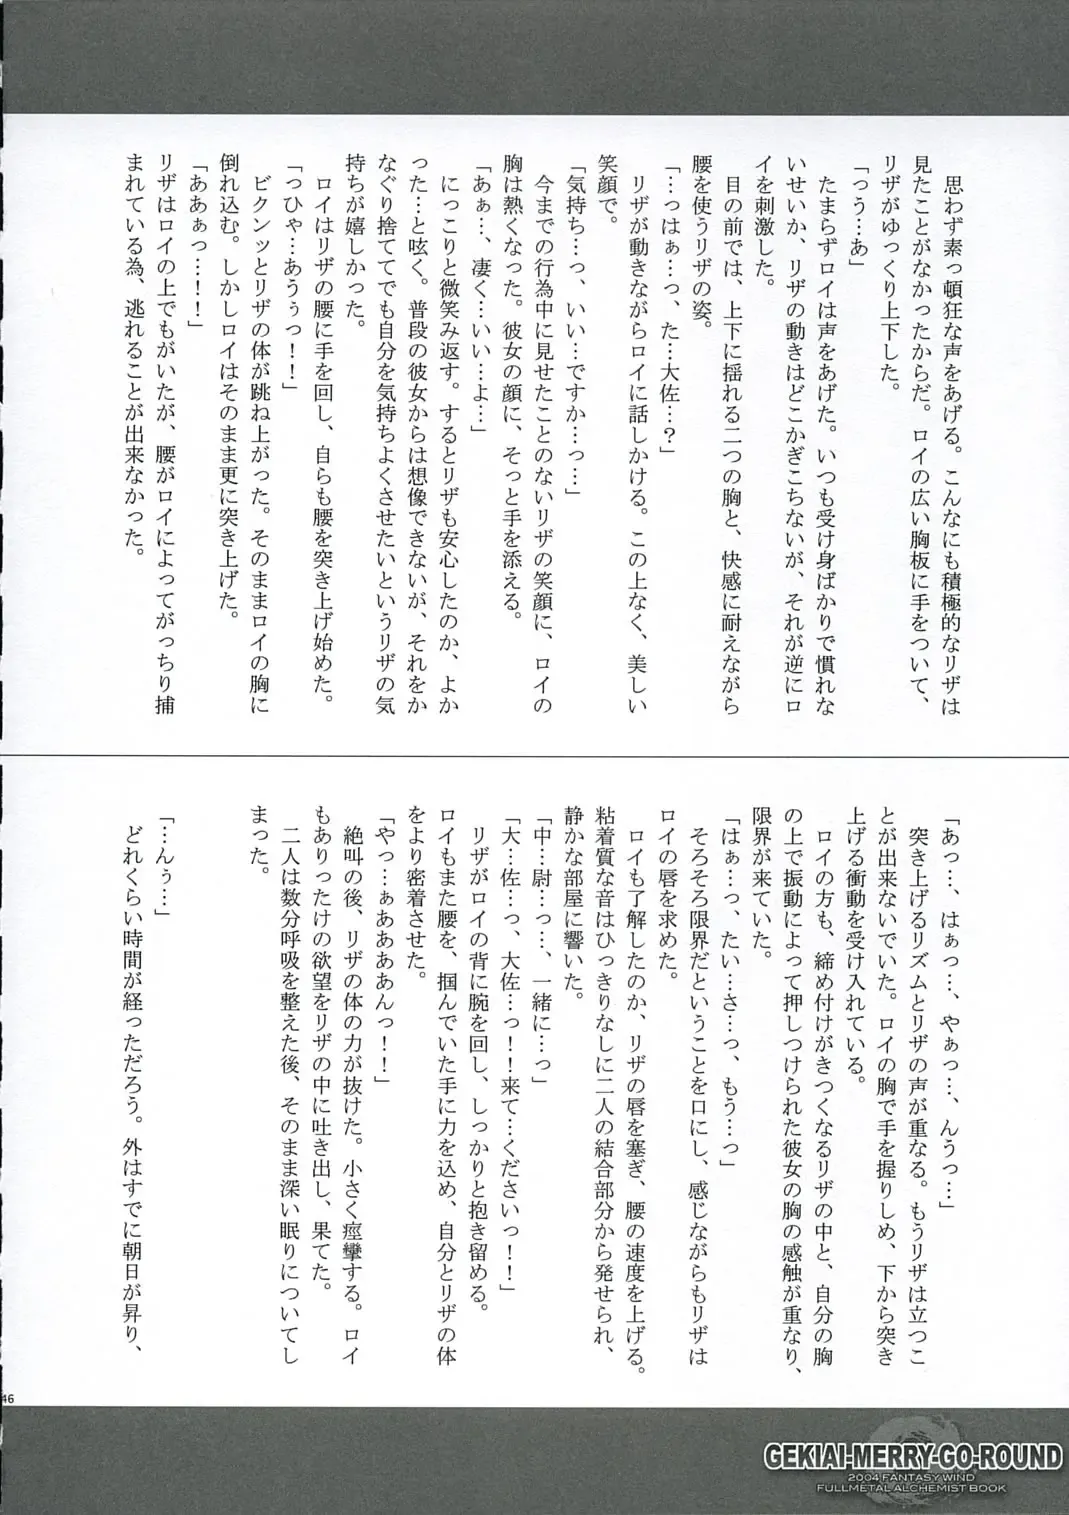 思わず素っ頓狂な声をあげる。こんなにも積極的なリザは
見たことがなかったからだ。ロイの広い胸板に手をついて、
リザがゆっくり上下した。
「っう…あ」
たまらずロイは声をあげた。いつも受け身ばかりで慣れな
いせいか、リザの動きはどこかぎこちないが、それが逆にロ
イを刺激した。
目の前では、上下に揺れる二つの胸と、快感に耐えながら
腰を使うリザの姿。
「…っはぁ…っ、た…大佐…?」
リザが動きながらロイに話しかける。この上なく、美しい
笑顔で。
「気持ち…っ、いい…ですか…っ…」
今までの行為中に見せたことのないリザの笑顔に、ロイの
胸は熱くなった。彼女の顔に、そっと手を添える。
「あぁ…、凄く…いい…よ…」
にっこりと微笑み返す。するとリザも安心したのか、よか
った…と呟く。普段の彼女からは想像できないが、それをか
なぐり捨ててでも自分を気持ちよくさせたいというリザの気
持ちが嬉しかった。
ロイはリザの腰に手を回し、自らも腰を突き上げ始めた。
「っひゃ…あうぅっ!!」
ビクンッとリザの体が跳ね上がった。そのままロイの胸に
倒れ込む。しかしロイはそのまま更に突き上げた。
「ああぁっ…!!」
リザはロイの上でもがいたが、腰がロイによってがっちり捕
まれている為、逃れることが出来なかった。
「あっ…、はぁっ…、やぁっ…、んうっ…」
突き上げるリズムとリザの声が重なる。もうリザは立つこ
とが出来ないでいた。ロイの胸で手を握りしめ、下から突き
上げる衝動を受け入れている。
ロイの方も、締め付けがきつくなるリザの中と、自分の胸
の上で振動によって押しつけられた彼女の胸の感触が重なり、
限界が来ていた。
「はぁ…っ、たい…さ…っ、もう…っ」
そろそろ限界だということを口にし、感じながらもリザは
ロイの唇を求めた。
ロイも了解したのか、リザの唇を塞ぎ、腰の速度を上げる。
粘着質な音はひっきりなしに二人の結合部分から発せられ、
静かな部屋に響いた。
「中…尉…っ…、一緒に…っ」
「大…佐…っ、大佐…っ!!来て…くださいっ!!」
リザがロイの背に腕を回し、しっかりと抱き留める。
ロイもまた腰を、掴んでいた手に力を込め、自分とリザの体
をより密着させた。
「やっ…ぁああああんっ!!」
絶叫の後、リザの体の力が抜けた。小さく痙攣する。ロイ
もありったけの欲望をリザの中に吐き出し、果てた。
二人は数分呼吸を整えた後、そのまま深い眠りについてし
まった。
「…んぅ…」
どれくらい時間が経っただろう。外はすでに朝日が昇り、
46
GEKIAI-MERRY-GO-ROUND
2004 FANTASY WIND
FULLMETAL ALCHEMIST BOOK